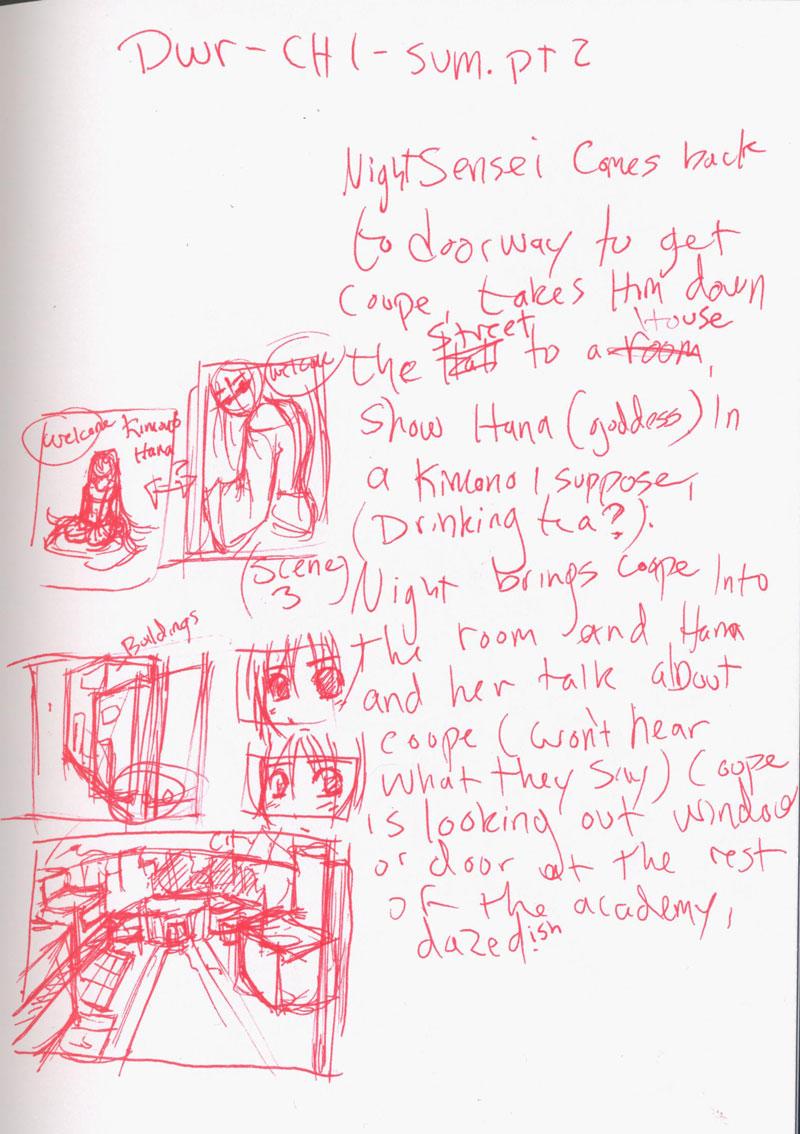 Dwr - CH 1 - sum. pt 2
NightSensei Comes back
to doorway to get
Coope, takes Him down
Street House
the hall to a room,
Show Hana (goddess) In
a Kimono I suppose,
(Drinking tea?).
Night brings Coope Into
the room and Hana
and her talk about
coope (won't hear
what they say) Coope
is looking out window
or door at the rest
of the academy,
dazedish
welcome
welcome
Kimono
Hana
?
(Scene
3)
Buildings
City